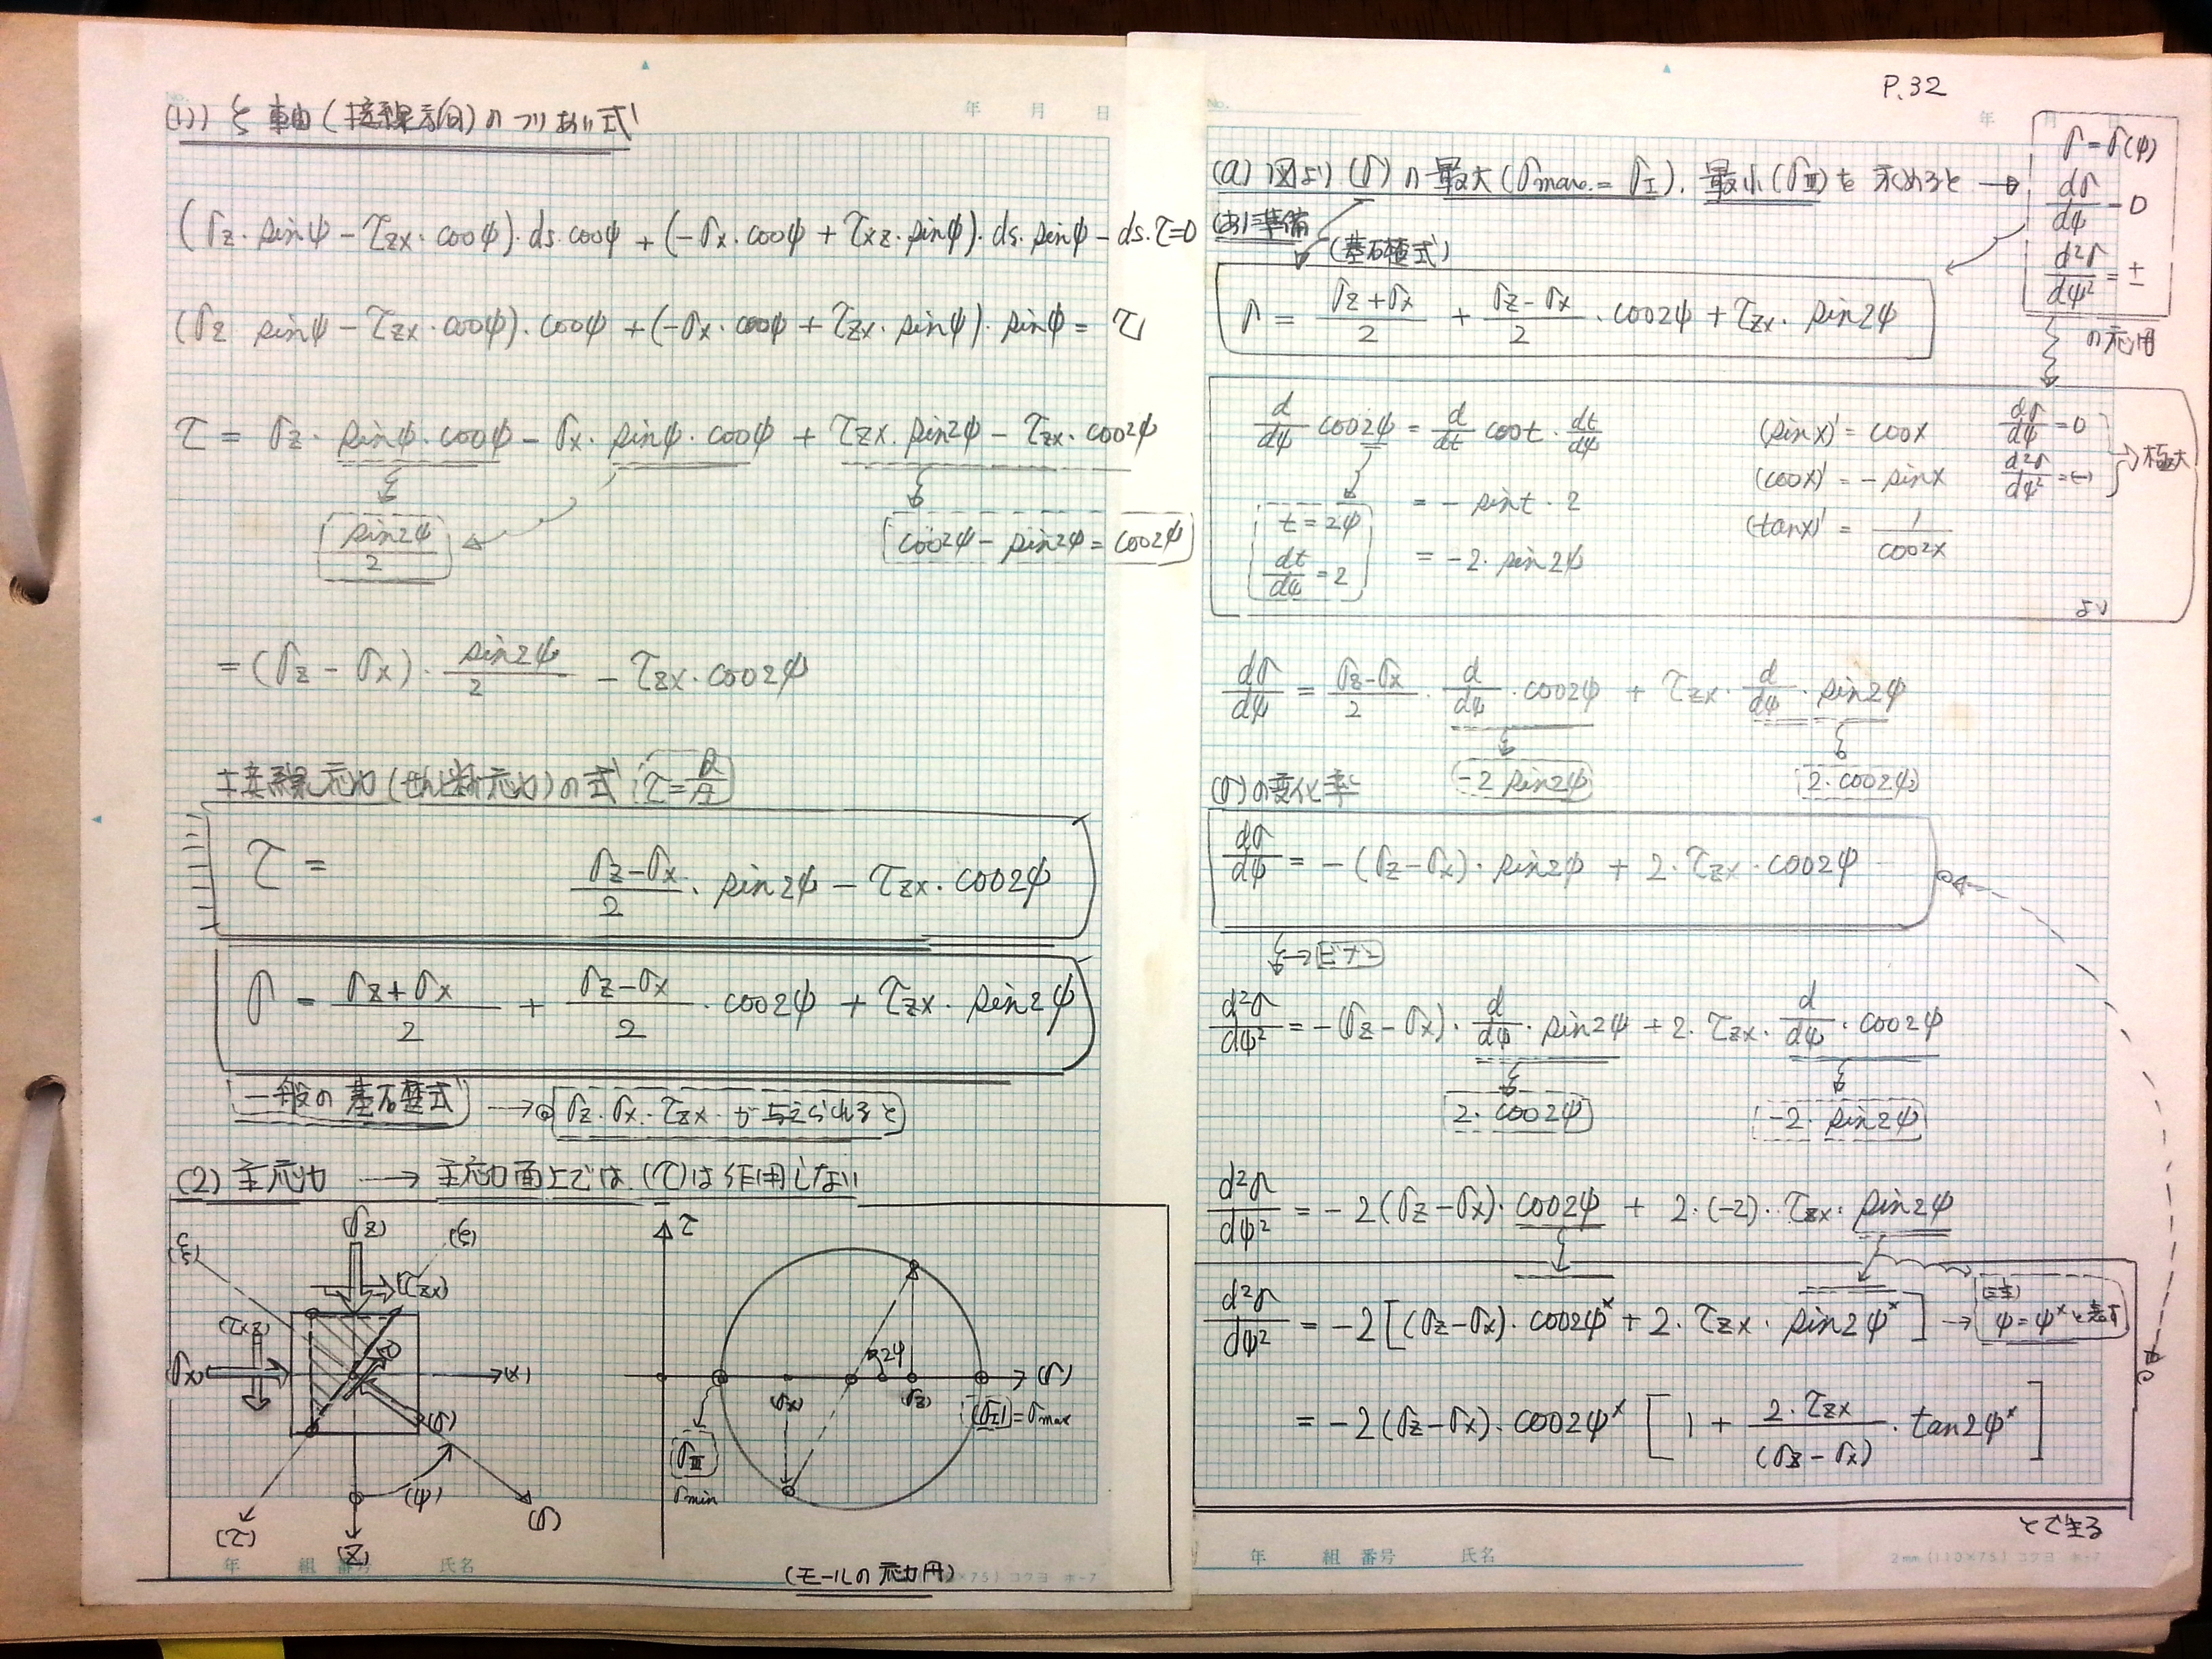 (ii) ξ軸(接線方向)のつりあい式
年 月 日
(σz・sinψ − τzx・cosψ)・ds・cosψ + (−σx・cosψ + τxz・sinψ)・ds・sinψ − ds・τ=0
(σz sinψ − τzx・cosψ)・cosψ + (−σx・cosψ + τzx・sinψ)・sinψ = τ
τ = σz・sinψ・cosψ − σx・sinψ・cosψ + τzx・sin²ψ − τzx・cos²ψ
sin2ψ/2
cos²ψ − sin²ψ = cos2ψ
= (σz − σx)・sin2ψ/2 − τzx・cos2ψ
接線応力(せん断応力)の式
τ = (σz−σx)/2・sin2ψ − τzx・cos2ψ
σ = (σz+σx)/2 + (σz−σx)/2・cos2ψ + τzx・sin2ψ
一般の基礎式 → σz・σx・τzx が与えられると
(2) 主応力 → 主応力面上では(τ)は作用しない
(σz)
(ξ)
(ξ)
(τzx)
(τxz)
(σx)
(x)
(σ)
(ψ)
(τ)
(z)
(σ)
τ
2ψ
(σ)
(σx)
(σz)
(σI)=σmax
(σⅢ)
σmin
(モールの応力円)
年 組 番号 氏名
P.32
No.
年 月
(a) 図より(σ)の最大(σmax.=σI)、最小(σⅢ)を求めると →
σ=σ(ψ)
dσ/dψ=0
d²σ/dψ²=±
の応用
(あ)準備
(基礎式)
σ = (σz+σx)/2 + (σz−σx)/2・cos2ψ + τzx・sin2ψ
d/dψ cos2ψ = d/dt cost・dt/dψ
= −sint・2
= −2・sin2ψ
t=2ψ
dt/dψ=2
(sinx)' = cosx
(cosx)' = −sinx
(tanx)' = 1/cos²x
dσ/dψ=0
d²σ/dψ²=(−)
→極大
より
dσ/dψ = (σz−σx)/2・d/dψ・cos2ψ + τzx・d/dψ・sin2ψ
−2 sin2ψ
2・cos2ψ
(σ)の変化率
dσ/dψ = −(σz−σx)・sin2ψ + 2・τzx・cos2ψ
d²σ/dψ² = −(σz−σx)・d/dψ・sin2ψ + 2・τzx・d/dψ・cos2ψ
2・cos2ψ
−2・sin2ψ
d²σ/dψ² = −2(σz−σx)・cos2ψ + 2・(−2)・τzx・sin2ψ
d²σ/dψ² = −2[(σz−σx)・cos2ψˣ + 2・τzx・sin2ψˣ] → (注) ψ=ψˣと表す
= −2(σz−σx)・cos2ψˣ [1 + 2・τzx/(σz−σx)・tan2ψˣ]
とできる
年 組 番号 氏名
2mm (110×75) コクヨ ホ-7